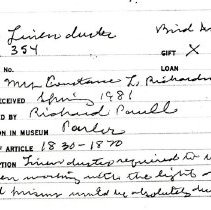 Linen duster Bird
354 GIFT X
No. LOAN
Mrs Constance L. Richards
RECEIVED Spring 1981
D BY Richard Powell
ON IN MUSEUM Parlor
OF ARTICLE 1830-1870
PTION Linen duster required to
working with the light
would be absolutely